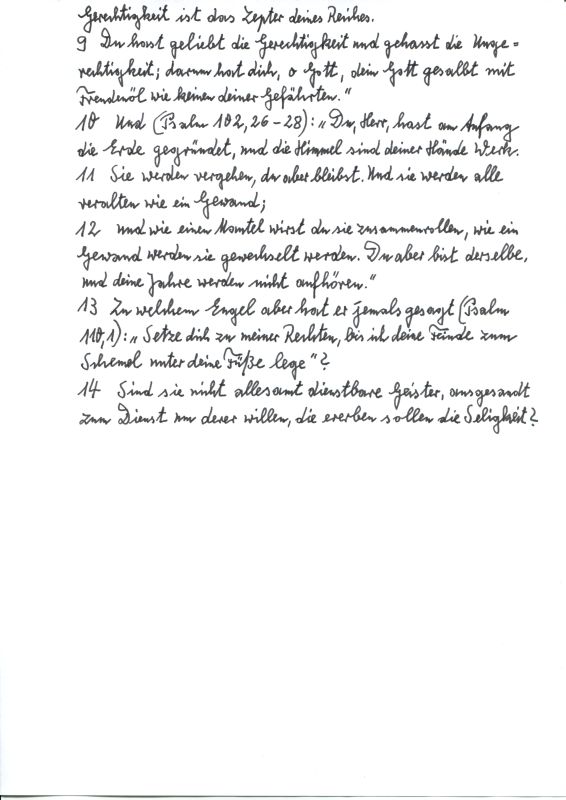 Gerechtigkeit ist das Zepter deines Reiches.
9 Du hast geliebt die Gerechtigkeit und gehasst die Unge=
rechtigkeit; darum hat dich, o Gott, dein Gott gesalbt mit
Freudenöl wie keinen deiner Gefährten."
10 Und (Psalm 102, 26-28): „Du, Herr, hast am Anfang
die Erde gegründet, und die Himmel sind deiner Hände Werk.
11 Sie werden vergehen, du aber bleibst. Und sie werden alle
veralten wie ein Gewand;
12 und wie einen Mantel wirst du sie zusammenrollen, wie ein
Gewand werden sie gewechselt werden. Du aber bist derselbe,
und deine Jahre werden nicht aufhören."
13 Zu welchem Engel aber hat er jemals gesagt (Psalm
110,1): „Setze dich zu meiner Rechten, bis ich deine Feinde zum
Schemel unter deine Füße lege"?
14 Sind sie nicht allesamt dienstbare Geister, ausgesandt
zum Dienst um derer willen, die ererben sollen die Seligkeit?